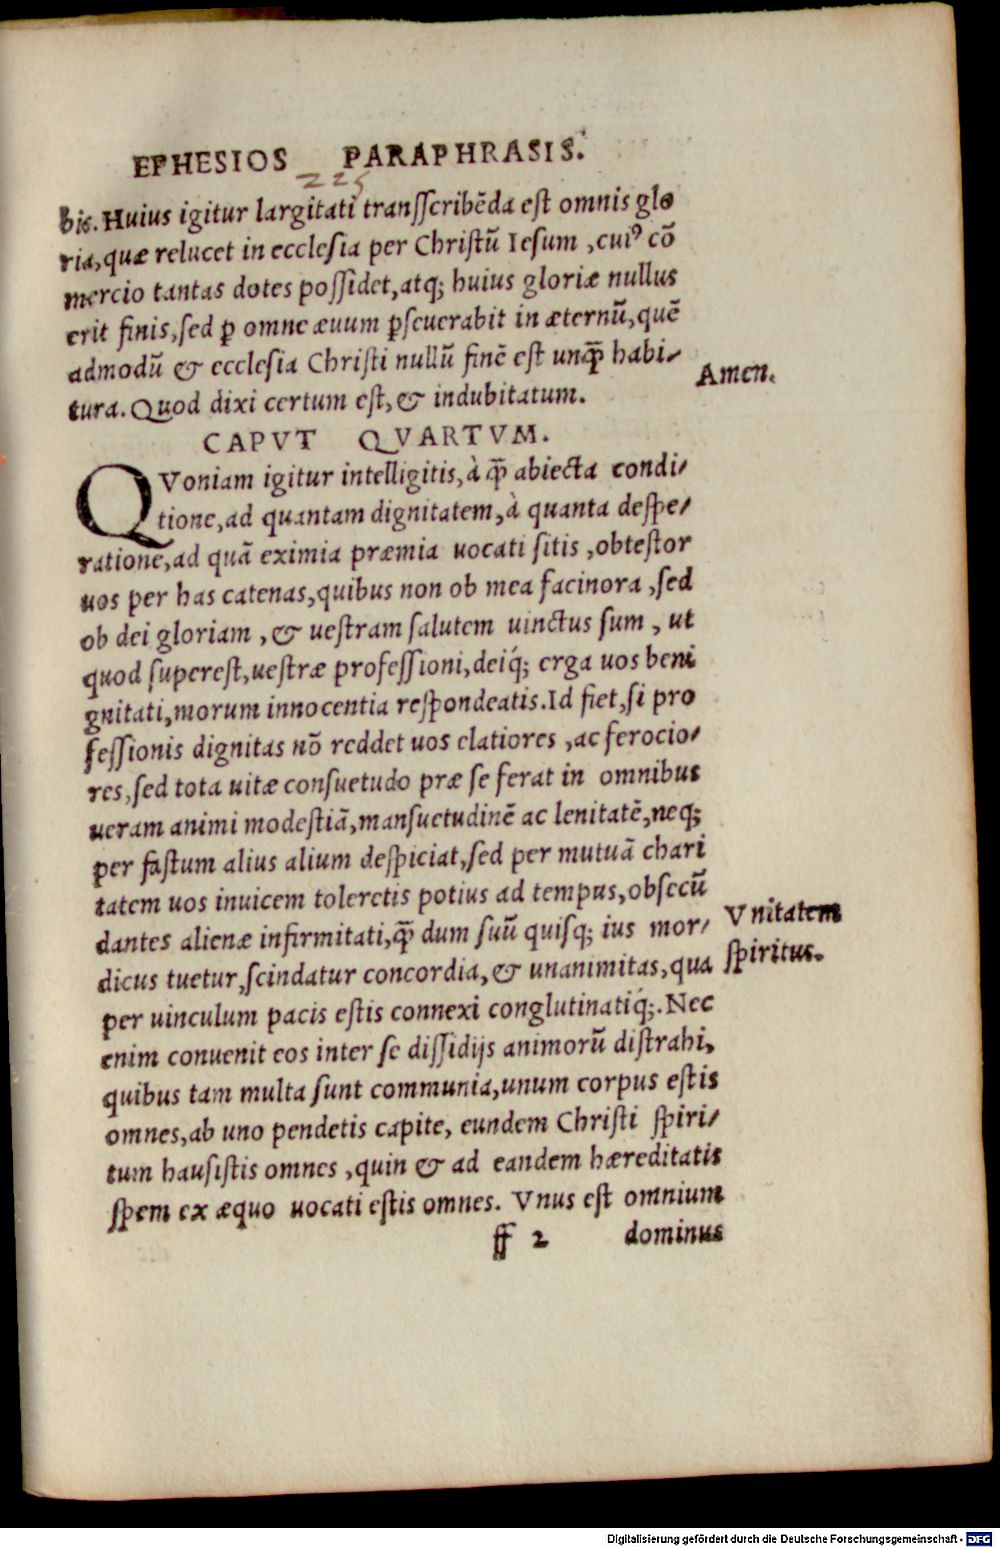 EPHESIOS PARAPHRASIS.
225
bis. Huius igitur largitati transſcribēda eſt omnis glo
ria, quæ relucet in eccleſia per Chriſtũ Ieſum, cuiꝰ cõ
mercio tantas dotes poſſidet, atq; huius gloriæ nullus
erit finis, ſed ꝑ omne æuum ꝑſeuerabit in æternũ, quē
admodũ & eccleſia Chriſti nullũ finē eſt unq̄ȝ habi/
Amen.
tura. Quod dixi certum eſt, & indubitatum.
CAPVT QVARTVM.
QVoniam igitur intelligitis, à q̄ȝ abiecta condi/
tione, ad quantam dignitatem, à quanta deſpe/
ratione, ad quā eximia præmia uocati ſitis, obteſtor
uos per has catenas, quibus non ob mea facinora, ſed
ob dei gloriam, & ueſtram ſalutem uinctus ſum, ut
quod ſupereſt, ueſtræ profeſſioni, deiq́; erga uos beni
gnitati, morum innocentia reſpondeatis. Id fiet, ſi pro
feſſionis dignitas nõ reddet uos elatiores, ac ferocio/
res, ſed tota uitæ conſuetudo præ ſe ferat in omnibus
ueram animi modeſtiā, manſuetudinē ac lenitatē, neq;
per faſtum alius alium deſpiciat, ſed per mutuā chari
tatem uos inuicem toleretis potius ad tempus, obſecũ
Vnitatem
dantes alienæ infirmitati, q̄ȝ dum ſuũ quiſq; ius mor/
ſpiritus.
dicus tuetur, ſcindatur concordia, & unanimitas, qua
per uinculum pacis eſtis connexi conglutinatiq́;. Nec
enim conuenit eos inter ſe diſſidijs animorũ diſtrahi,
quibus tam multa ſunt communia, unum corpus eſtis
omnes, ab uno pendetis capite, eundem Chriſti ſpiri/
tum hauſiſtis omnes, quin & ad eandem hæreditatis
ſpem ex æquo uocati eſtis omnes. Vnus eſt omnium
ff 2 dominus
Digitalisierung gefördert durch die Deutsche Forschungsgemeinschaft - DFG